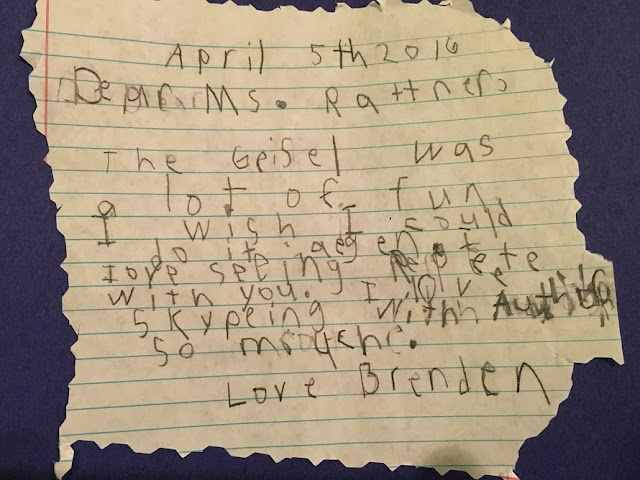 April 5th 2016
Dear Ms. Rattner
The Geisel was
a lot of fun
I wish I could
do it agen. I
love seeing Pete
with you. I love
skypeing with Author
so
Love Brenden